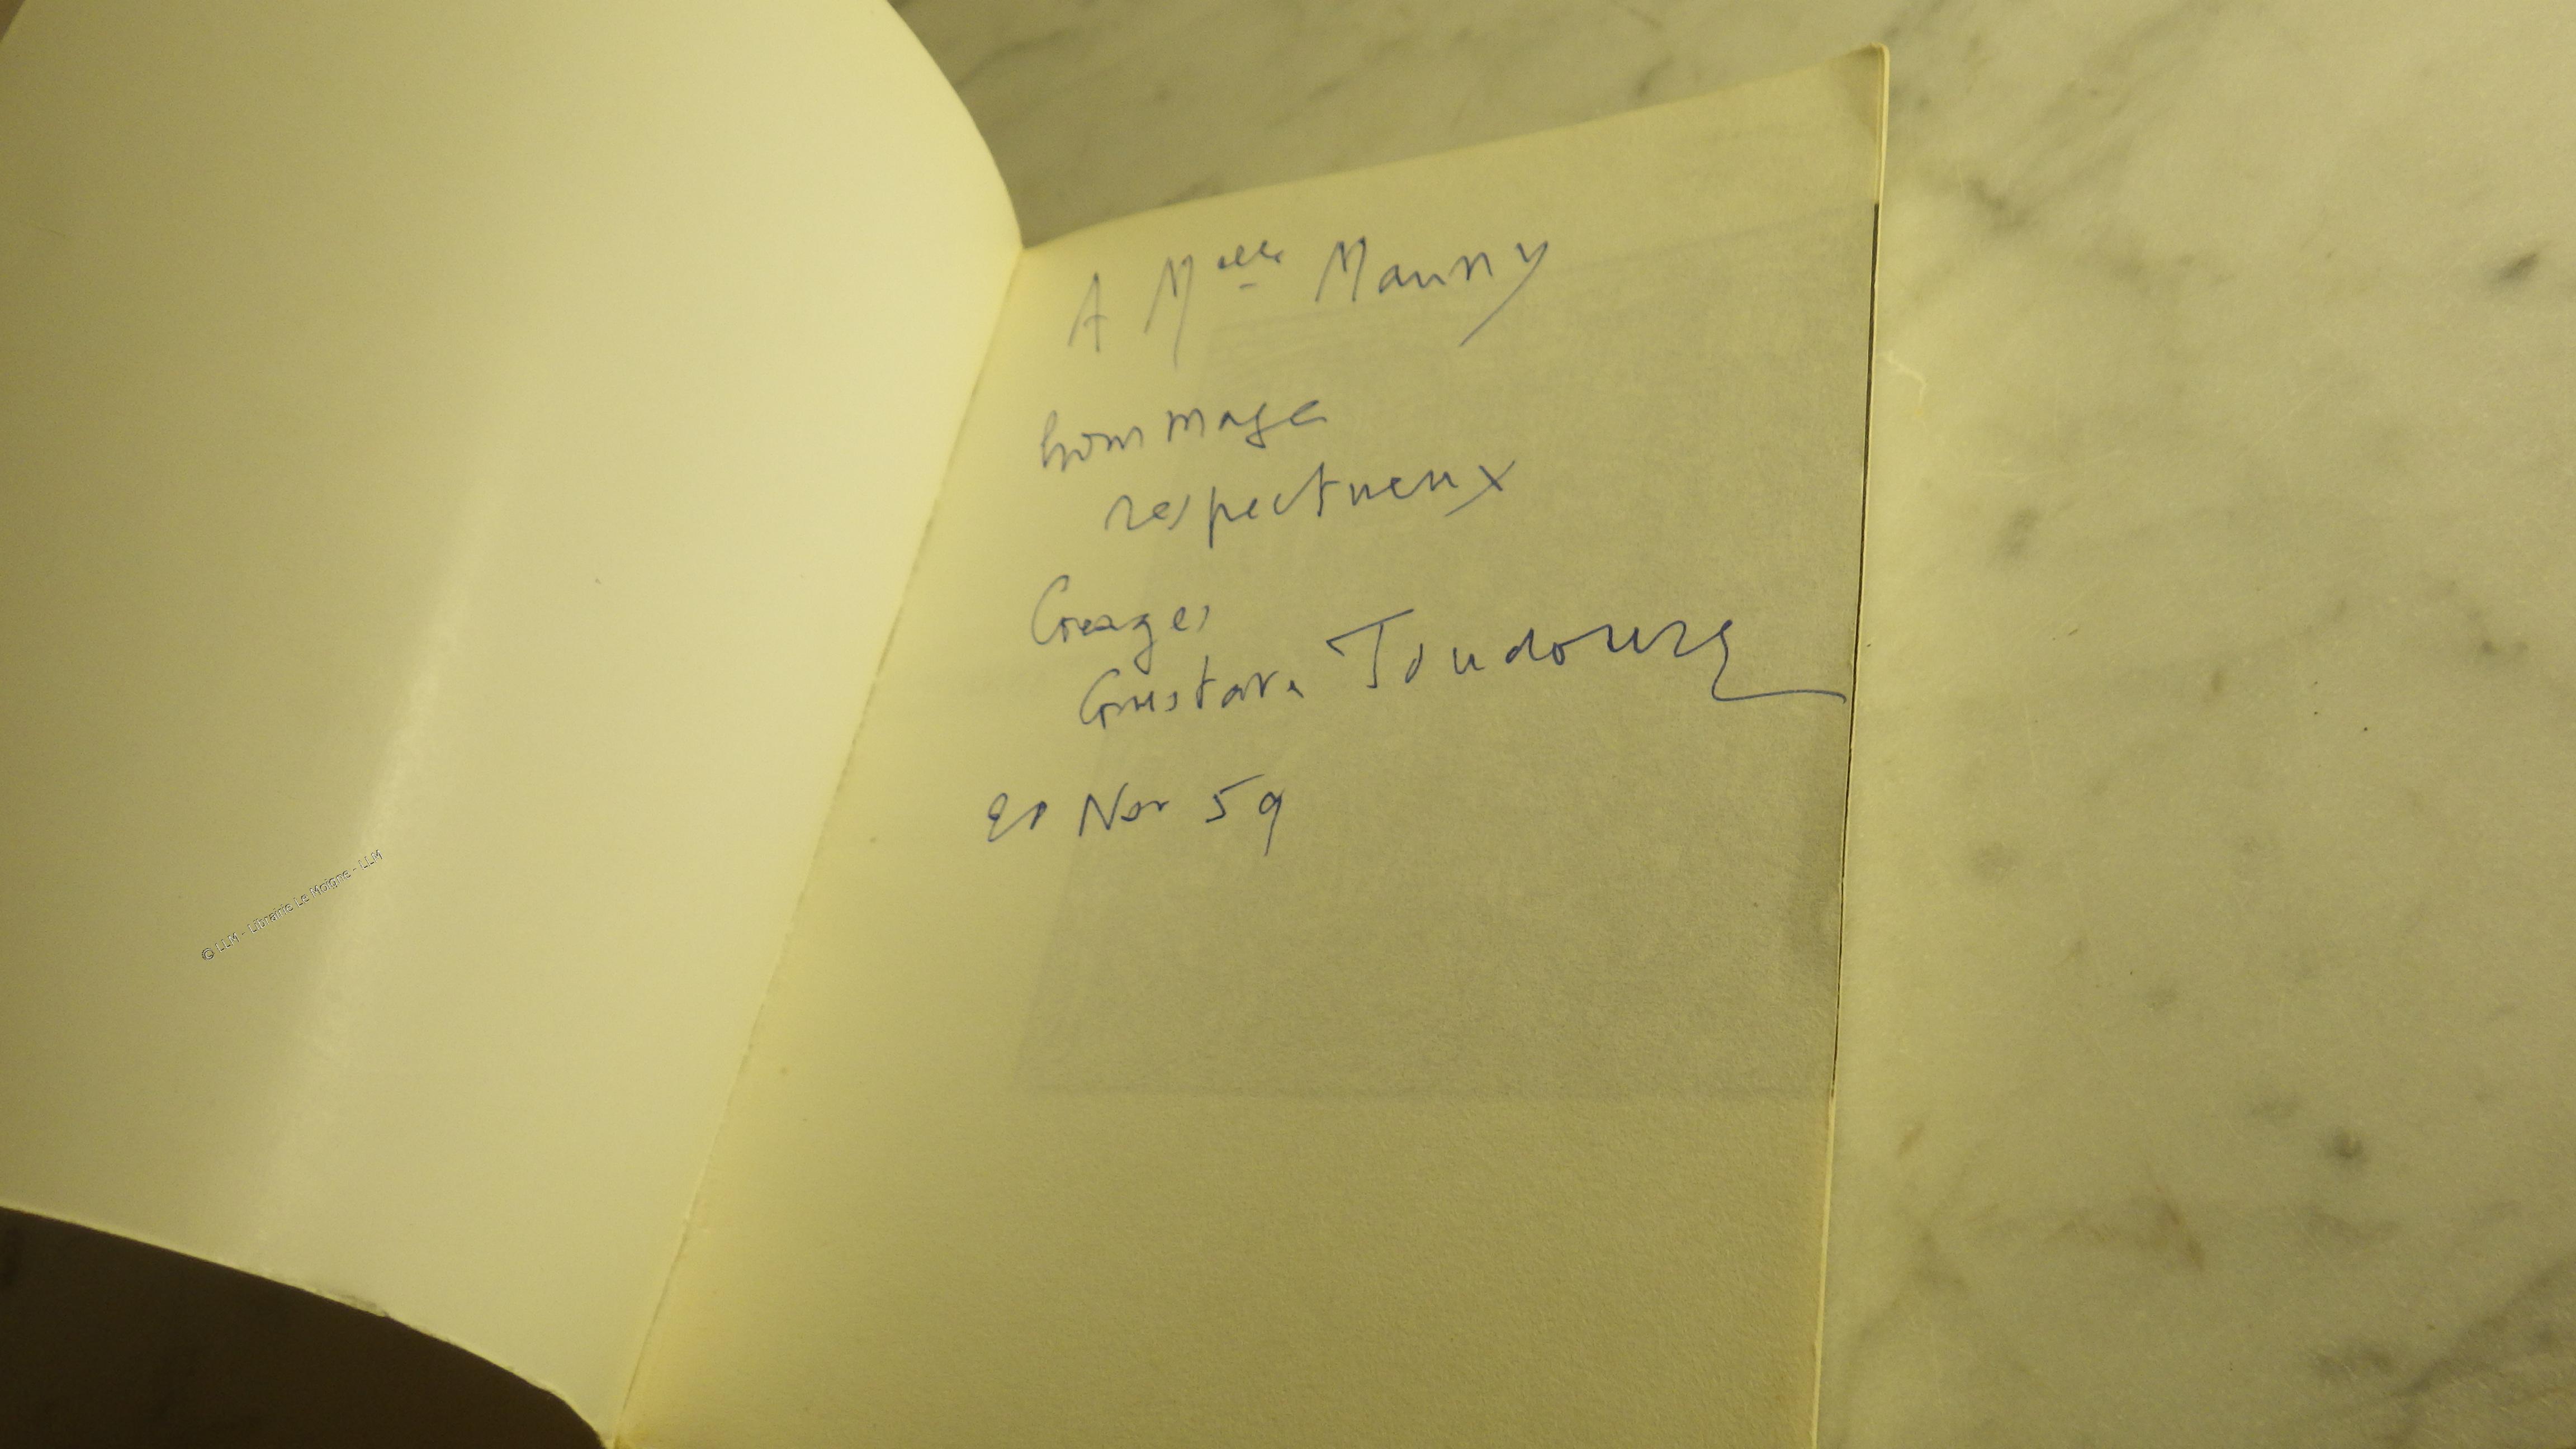 A Melle Mauny
hommage
respectueux
Georges
Gustave Toudouze
Nov 59
© LLM - Librairie Le Moigne - LLM